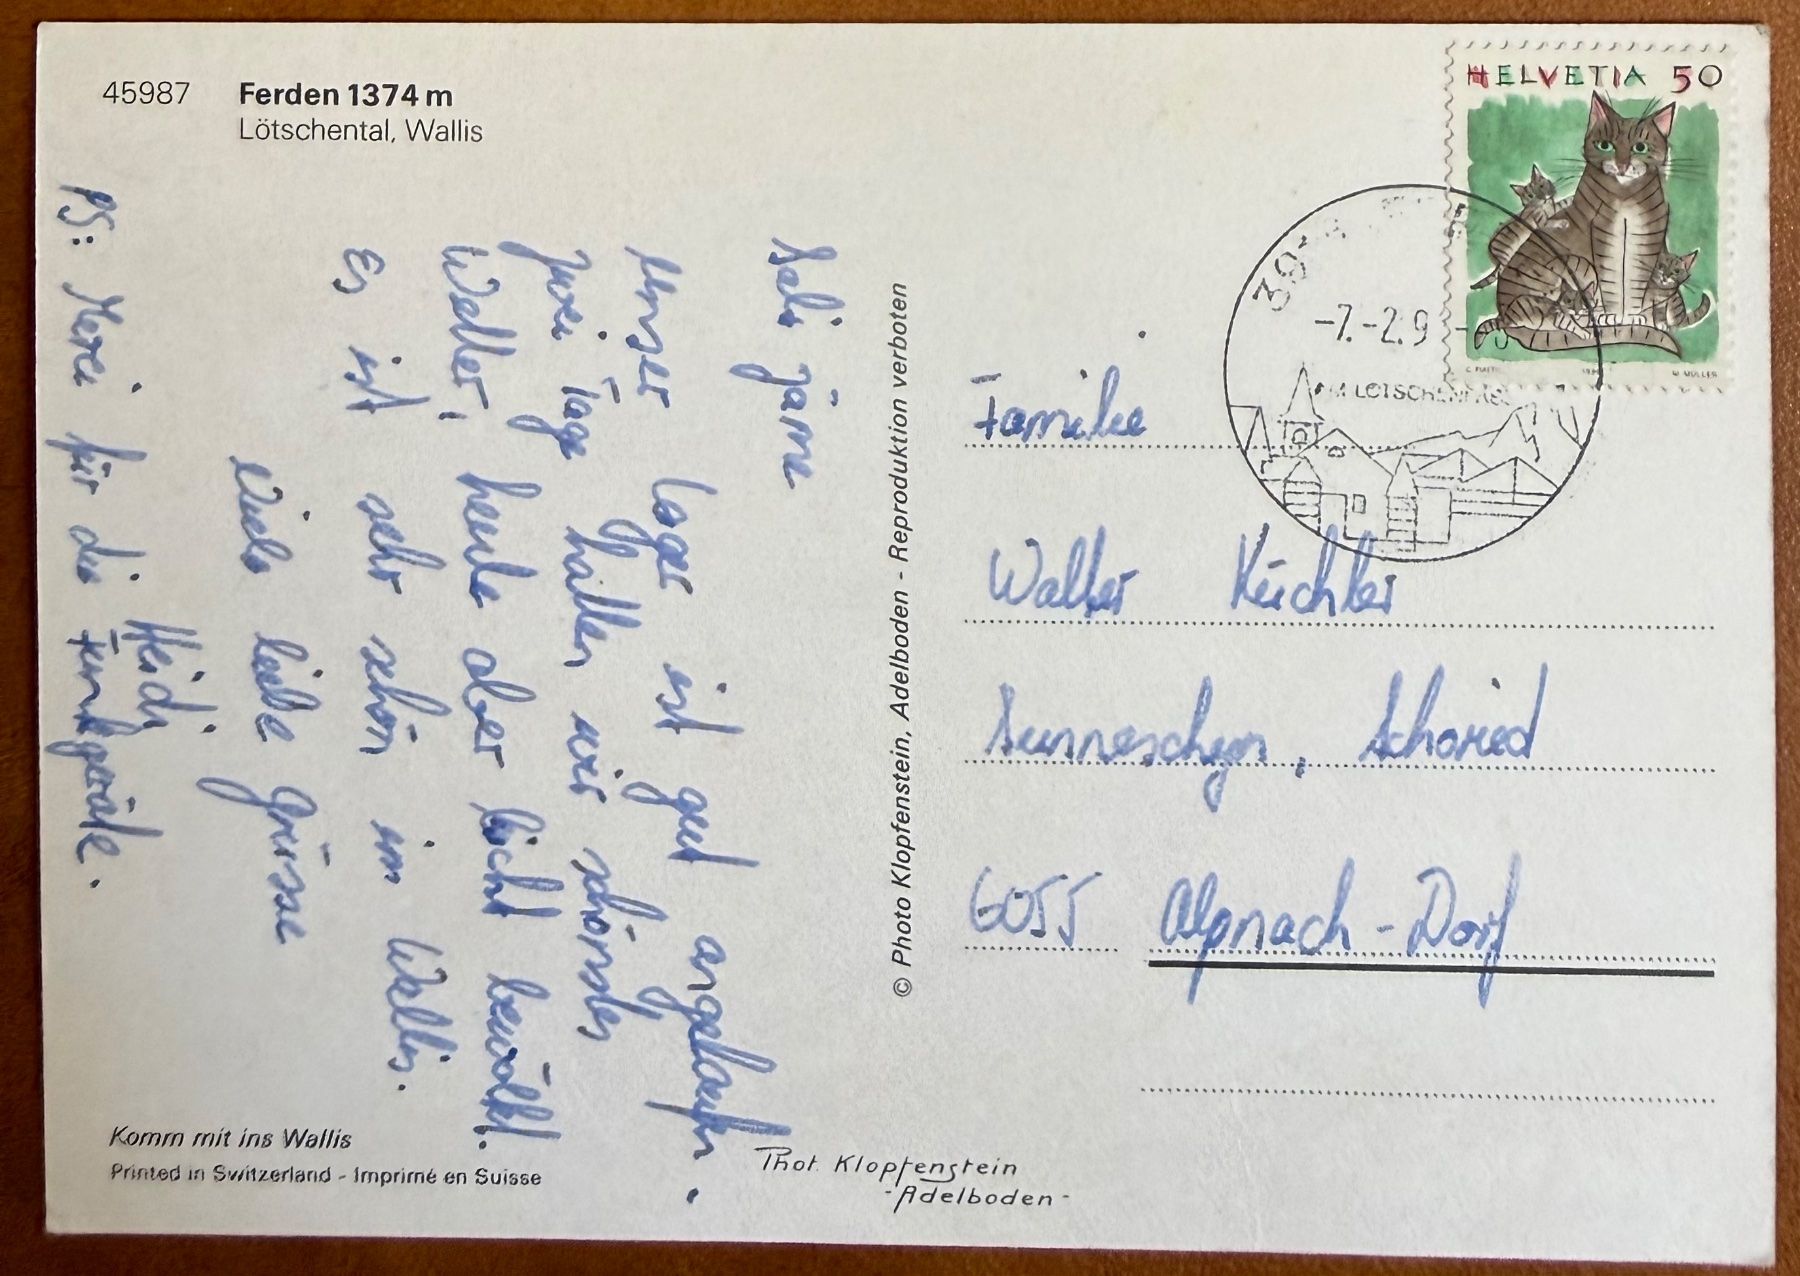 45987 Ferden 1374 m
Lötschental, Wallis
HELVETIA 50
-7.-2.9
AM LÖTSCHENPASS
Sali zäme
Unser Lager ist gut angelaufen.
Zwei Tage hatten wir schönstes
Wetter, heute aber leicht bewölkt.
Es ist sehr schön im Wallis.
Viele liebe Grüsse
Heidi
PS: Merci für die Funkgeräte.
© Photo Klopfenstein, Adelboden - Reproduktion verboten
Familie
Walter Küchler
Sunneschyn, Schoried
6055 Alpnach-Dorf
Komm mit ins Wallis
Printed in Switzerland - Imprimé en Suisse
Phot. Klopfenstein
-Adelboden-